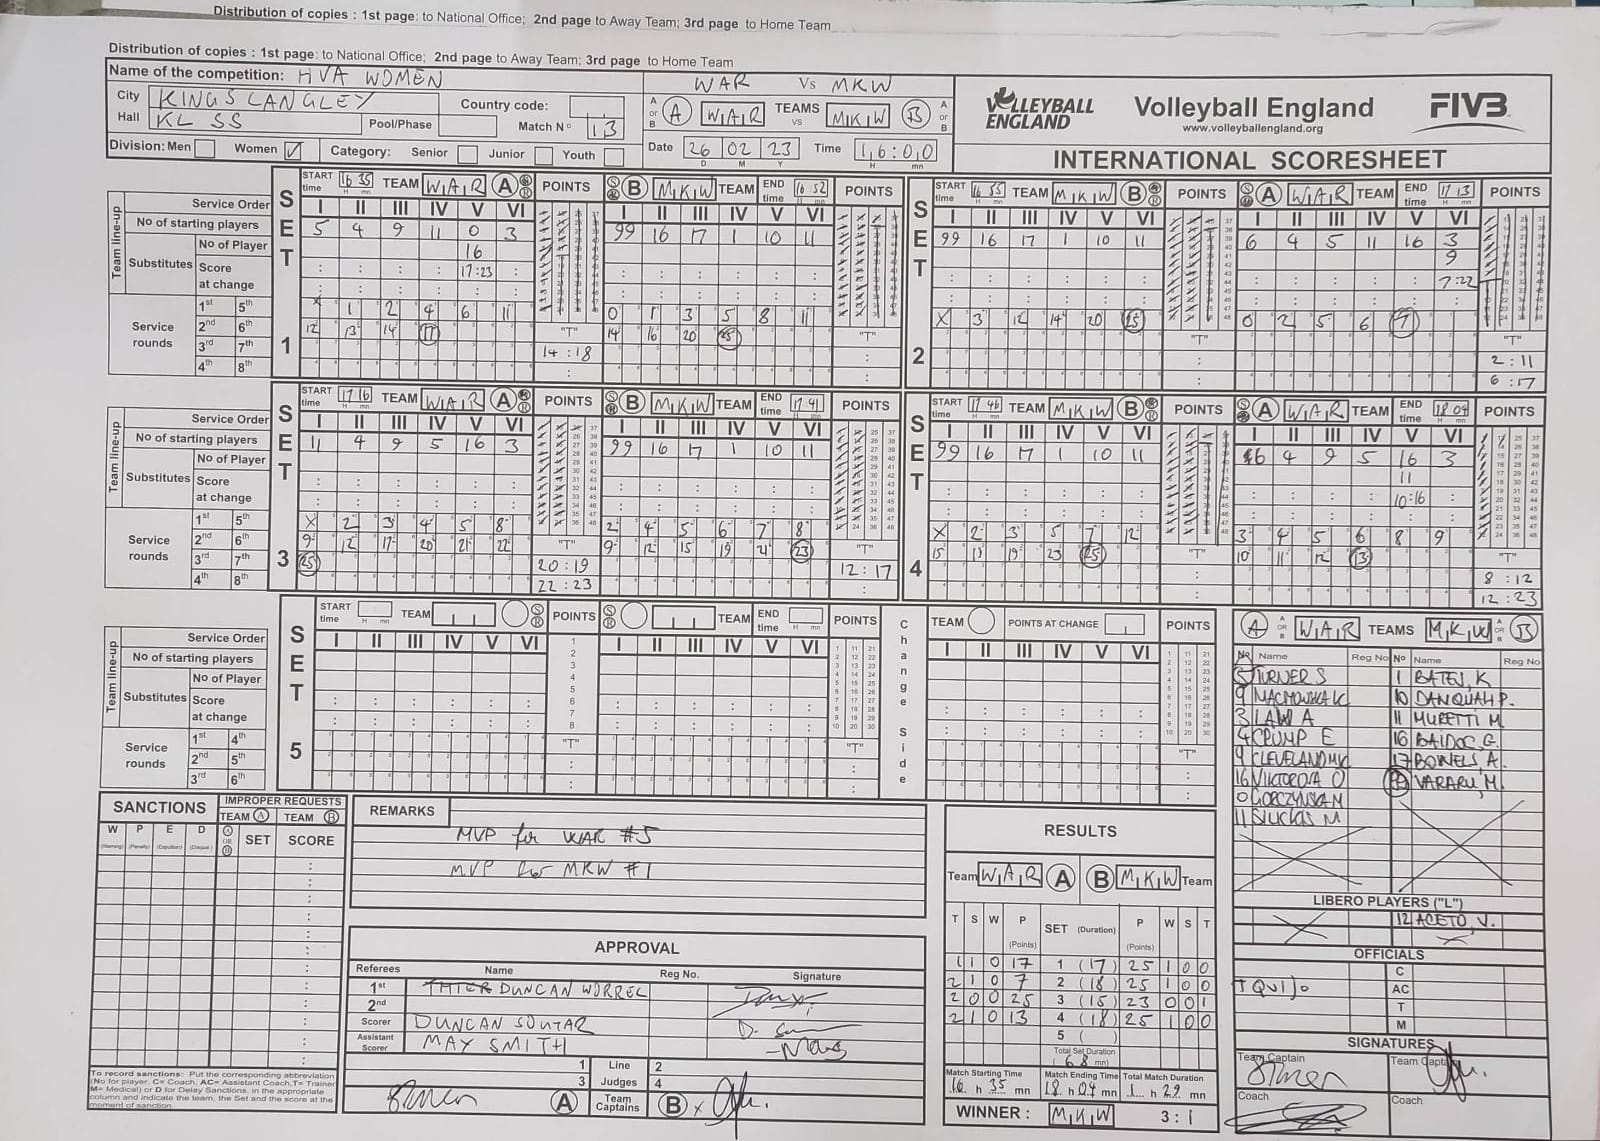 Distribution of copies : 1st page: to National Office; 2nd page to Away Team; 3rd page to Home Team
Distribution of copies : 1st page: to National Office; 2nd page to Away Team; 3rd page to Home Team
Name of the competition: HVA WOMEN
WAR Vs MKW
City KINGS LANGLEY Country code:
Hall KL SS Pool/Phase Match Nº 13
A or B A WAR TEAMS vs MKW B A or B
Division: Men Women Category: Senior Junior Youth
Date 26 02 23 Time 16:00
D M Y H mn
VOLLEYBALL ENGLAND
Volleyball England
www.volleyballengland.org
FIVB
INTERNATIONAL SCORESHEET
SET 1
START time 16 35 TEAM WAR A POINTS B MKW TEAM END time 16 52 POINTS
Team line-up
Service Order I II III IV V VI I II III IV V VI
No of starting players 5 4 9 11 0 3 99 16 17 1 10 11
Substitutes No of Player 16
Score at change 17:23
Service rounds
1st 5th X 1 2 4 6 11 0 1 3 5 8 11
2nd 6th 12 13 14 17 14 16 20 25
3rd 7th
4th 8th
"T" 14:18 "T"
SET 2
START time 16 55 TEAM MKW B POINTS A WAR TEAM END time 17 13 POINTS
I II III IV V VI I II III IV V VI
99 16 17 1 10 11 6 4 5 11 16 3
9
7:22
X 3 12 14 20 25 0 2 5 6 7
"T" "T" 2:11
6:17
SET 3
START time 17 16 TEAM WAR A POINTS B MKW TEAM END time 17 41 POINTS
Team line-up
Service Order I II III IV V VI I II III IV V VI
No of starting players 11 4 9 5 16 3 99 16 17 1 10 11
Substitutes No of Player
Score at change
Service rounds
1st 5th X 2 3 4 5 8 2 4 5 6 7 8
2nd 6th 9 12 17 20 21 22 9 12 15 19 21 23
3rd 7th 25
4th 8th
"T" 20:19 "T" 12:17
22:23
SET 4
START time 17 46 TEAM MKW B POINTS A WAR TEAM END time 18 04 POINTS
I II III IV V VI I II III IV V VI
99 16 17 1 10 11 4 9 5 16 3
11
10:16
X 2 3 5 7 12 3 4 5 6 8 9
15 19 23 25 10 11 12 13
"T" "T" 8:12
12:23
SET 5
START time TEAM POINTS TEAM END time POINTS
Team line-up
Service Order I II III IV V VI I II III IV V VI
No of starting players
Substitutes No of Player
Score at change
Service rounds
1st 4th
2nd 5th
3rd 6th
"T" "T"
Change Side
TEAM POINTS AT CHANGE POINTS
I II III IV V VI
"T"
A WAR TEAMS MKW B
No Name Reg No Nº Name Reg No
5 TURNER S 1 BATES, K
9 10 DANQUAH P.
3 LAW A 11 MURETTI M
4 CRUMP E 16 BAIDOC, G.
9 17 BOWELS, A.
16 VIKTOROJA O VARARU, M.
0 GORCZYNSKA M
11
LIBERO PLAYERS ("L")
12 ACETO, V.
OFFICIALS
C
AC
T
M
SIGNATURES
Team Captain Team Captain
Coach Coach
SANCTIONS IMPROPER REQUESTS
TEAM A TEAM B
W P E D A OR B SET SCORE
(Warning) (Penalty) (Expulsion) (Disqual.)
To record sanctions: Put the corresponding abbreviation
(No for player, C= Coach, AC= Assistant Coach, T= Trainer
M= Medical) or D for Delay Sanctions, in the appropriate
column and indicate the team, the Set and the score at the
moment of sanction.
REMARKS
MVP for WAR #5
MVP for MKW #1
APPROVAL
Referees Name Reg No. Signature
1st DUNCAN WORREL
2nd
Scorer DUNCAN SOUTAR
Assistant Scorer MAY SMITH
1 Line 2
3 Judges 4
A Team Captains B
RESULTS
Team WAR A B MKW Team
T S W P (Points) SET (Duration) P (Points) W S T
1 1 0 17 1 (17) 25 1 0 0
2 1 0 7 2 (18) 25 1 0 0
2 0 0 25 3 (15) 23 0 0 1
2 1 0 13 4 (18) 25 1 0 0
5 ( )
Total Set Duration
(68 mn)
Match Starting Time Match Ending Time Total Match Duration
16 h 35 mn 18 h 04 mn 1 h 29 mn
WINNER : MKW 3:1